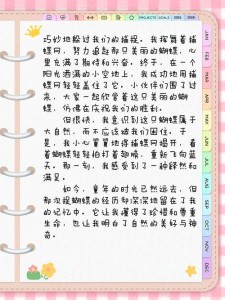 PROJECTS GOALS
巧妙地躲过我们的捕捉。我挥舞着捕
蝶网，努力追赶那只美丽的蝴蝶，心
里充满了期待和兴奋。终于，在一个
阳光洒满的小空地上，我成功地用捕
蝶网轻轻盖住了它。小伙伴们围了过
来，大家一起欣赏着这只美丽的蝴
蝶，仿佛在庆祝我们的胜利。
但很快，我意识到这只蝴蝶属于
大自然，而不应该被我们困住。于
是，我小心翼翼地将捕蝶网揭开，看
着蝴蝶轻轻拍打着翅膀，重新飞向蓝
天。那一刻，我感受到了一种释然和
满足。
如今，童年的时光已然远去，但
那次捉蝴蝶的经历却深深地留在了我
的记忆中。它让我懂得了珍惜和尊重
生命，也让我明白了自然的美好与神
奇。
JAN
FEB
MAR
APR
MAY
JUN
JUL
AUG
SEP
OCT
NOV
DEC